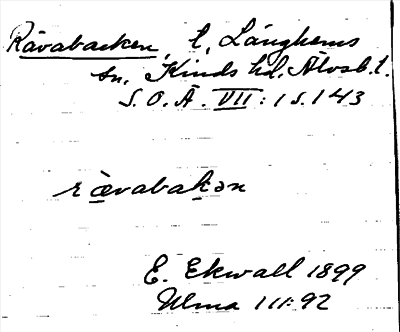 Rävabacken, t, Långhems
sn, Kinds hd. Älvsb. l.
S.O.Ä. VII: 1 s. 143
rävabakən
E. Ekwall 1899
Ulma 111:92